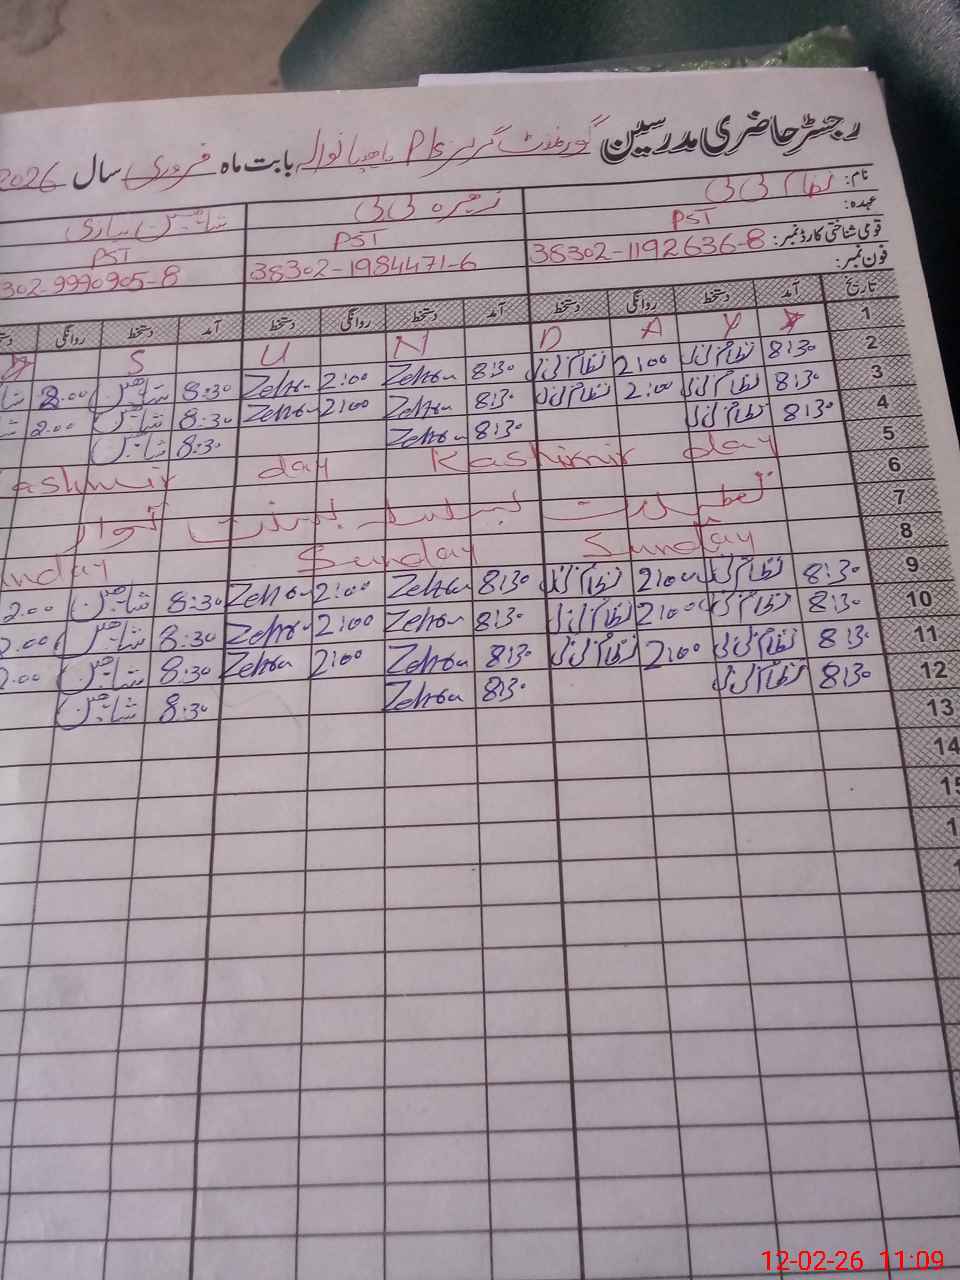 رجسٹر حاضری مدرسین گورنمنٹ گرلز P/s بابت ماہ فروری سال 2026
نام: نظام بی بی زہرہ بی بی
عہدہ: PST PST PST
قومی شناختی کارڈ نمبر: 38302-1192636-8 38302-1984471-6 302-9990905-8
فون نمبر:
تاریخ آمد دستخط روانگی دستخط آمد دستخط روانگی دستخط آمد دستخط روانگی
1 S U N D A Y
2 8:30 نظام بی بی 2:00 نظام بی بی 8:30 Zehra 2:00 Zehra 8:30 شاہین 2.00
3 8:30 نظام بی بی 2:00 نظام بی بی 8:30 Zehra 2:00 Zehra 8:30 شاہین 2.00
4 8:30 نظام بی بی 8:30 Zehra 8:30 شاہین
5 ashmir day Kashmir day
6 تعطیلات بسلسلہ بسنت تہوار
7
8 nday Sunday Sunday
9 8:30 نظام بی بی 2:00 نظام بی بی 8:30 Zehra 2:00 Zehra 8:30 شاہین 2.00
10 8:30 نظام بی بی 2:00 نظام بی بی 8:30 Zehra 2:00 Zehra 8:30 شاہین 2.00
11 8:30 نظام بی بی 2:00 نظام بی بی 8:30 Zehra 2:00 Zehra 8:30 شاہین 2.00
12 8:30 نظام بی بی 8:30 Zehra 8:30 شاہین
13
14
15
12-02-26 11:09